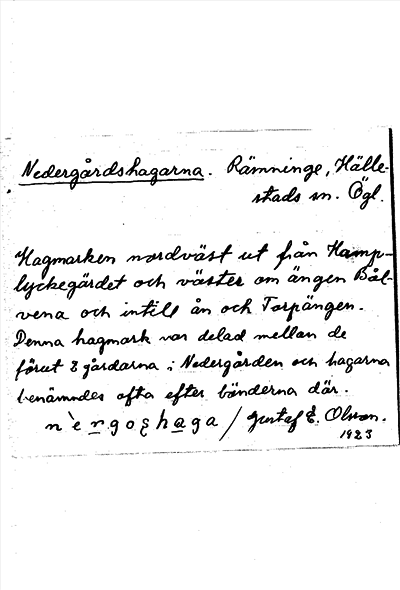 Nedergårdshagarna. Rämninge, Hälle-
stads sn. Ögl.
Hagmarken nordväst ut från Hamp-
lyckegärdet och väster om ängen Bål-
vena och intill ån och Torpängen.
Denna hagmark var delad mellan de
förut 8 gårdarna i Nedergården och hagarna
benämndes ofta efter bönderna där.
Gustaf E. Olsson.
1923